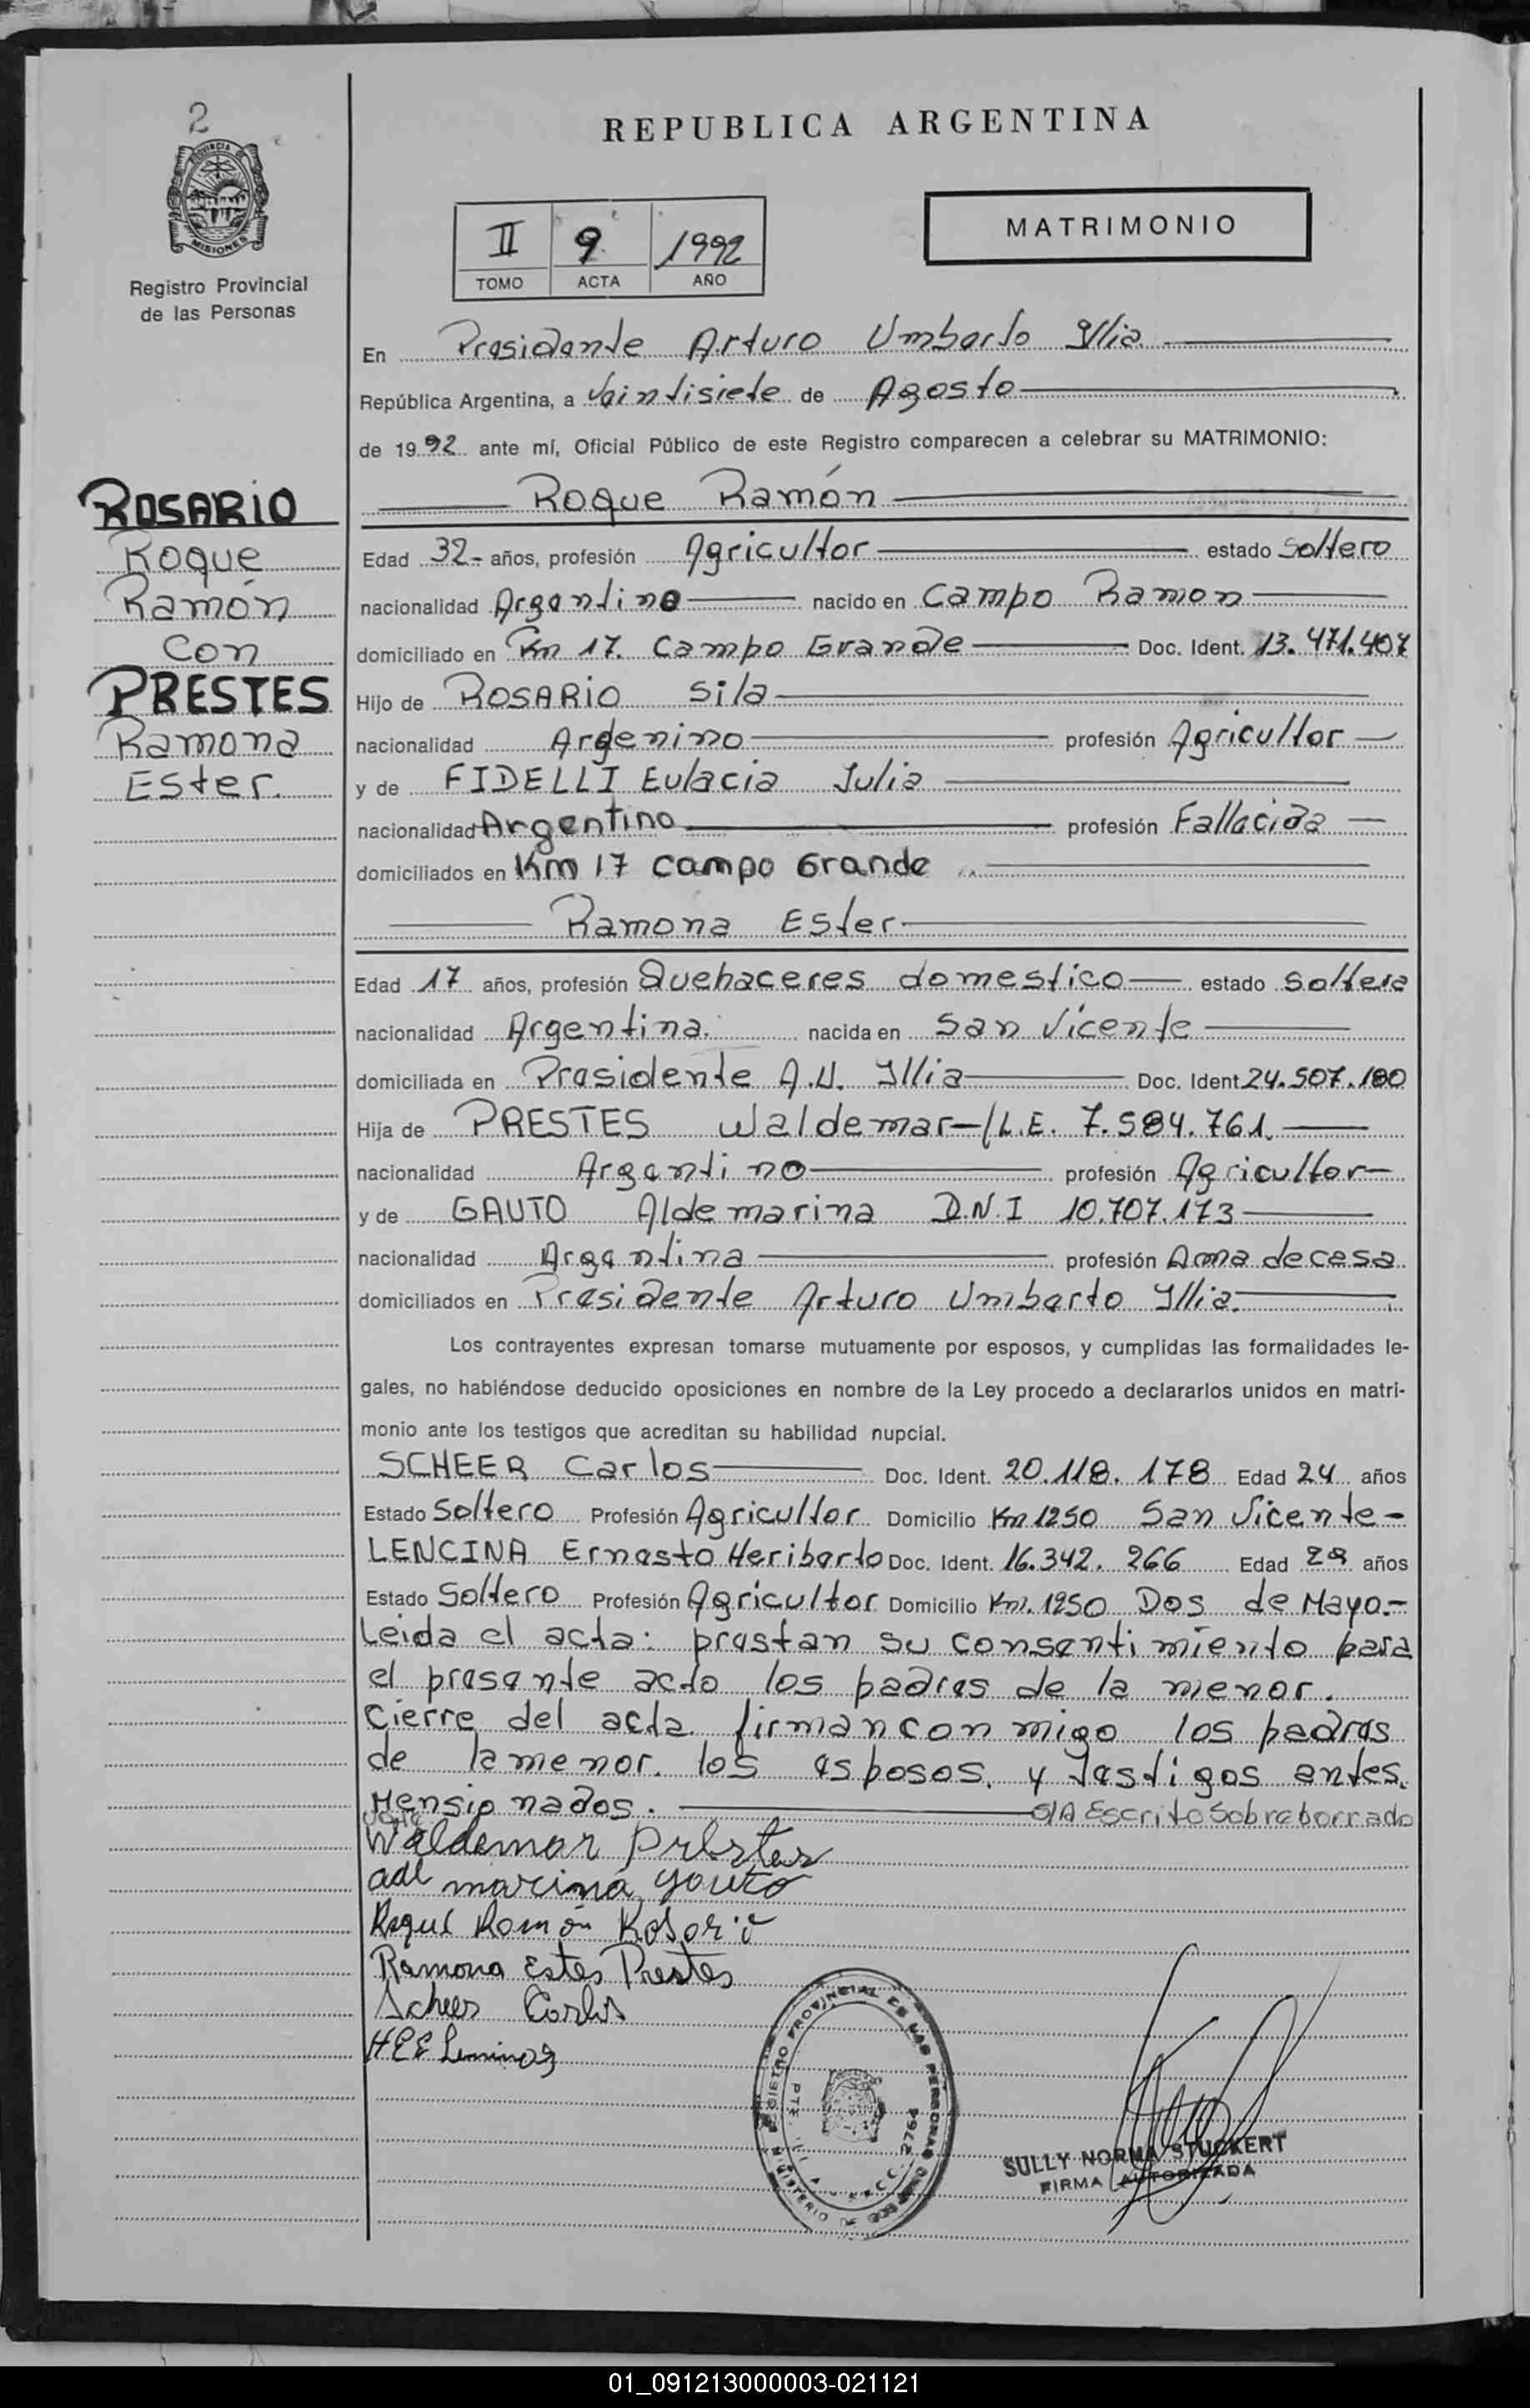 2
PROVINCIA
MISIONES
Registro Provincial
de las Personas
REPUBLICA ARGENTINA
II 9 1992
TOMO ACTA AÑO
MATRIMONIO
En Presidente Arturo Umberto Yllia
República Argentina, a Veintisiete de Agosto
de 1992 ante mí, Oficial Público de este Registro comparecen a celebrar su MATRIMONIO:
ROSARIO
Roque
Ramón
con
PRESTES
Ramona
Ester.
Roque Ramón
Edad 32- años, profesión Agricultor estado Soltero
nacionalidad Argentino nacido en Campo Ramon
domiciliado en Km 17. Campo Grande Doc. Ident. 13.471.407
Hijo de ROSARIO Sila
nacionalidad Argenino profesión Agricultor
y de FIDELLI Eulacia Julia
nacionalidad Argentino profesión Fallecida
domiciliados en Km 17 Campo Grande
Ramona Ester
Edad 17 años, profesión Quehaceres domestico estado Soltera
nacionalidad Argentina. nacida en San Vicente
domiciliada en Presidente A.U. Yllia Doc. Ident 24.507.180
Hija de PRESTES Waldemar-/L.E. 7.584.761.
nacionalidad Argentino profesión Agricultor
y de GAUTO Aldemarina D.N.I 10.707.173
nacionalidad Argentina profesión Ama de casa
domiciliados en Presidente Arturo Umberto Yllia.
Los contrayentes expresan tomarse mutuamente por esposos, y cumplidas las formalidades le-
gales, no habiéndose deducido oposiciones en nombre de la Ley procedo a declararlos unidos en matri-
monio ante los testigos que acreditan su habilidad nupcial.
SCHEER Carlos Doc. Ident. 20.118.178 Edad 24 años
Estado Soltero Profesión Agricultor Domicilio Km 1250 San Vicente-
LENCINA Ernesto Heriberto Doc. Ident. 16.342.266 Edad 29 años
Estado Soltero Profesión Agricultor Domicilio Km. 1250 Dos de Mayo.-
Leida el acta: prestan su consentimiento para
el presente acto los padres de la menor.
Cierre del acta firman con migo los padres
de la menor. los esposos, y testigos antes.
Mensionados. S/A Escrito Sobreborrado
Vale
Waldemar Prestes
adl marina gauto
Roque Ramón Rosario
Ramona Ester Prestes
Scheer Carlos
REGISTRO PROVINCIAL DE LAS PERSONAS
MINISTERIO DE
2764
SULLY NORMA STUCKERT
FIRMA AUTORIZADA
01_091213000003-021121